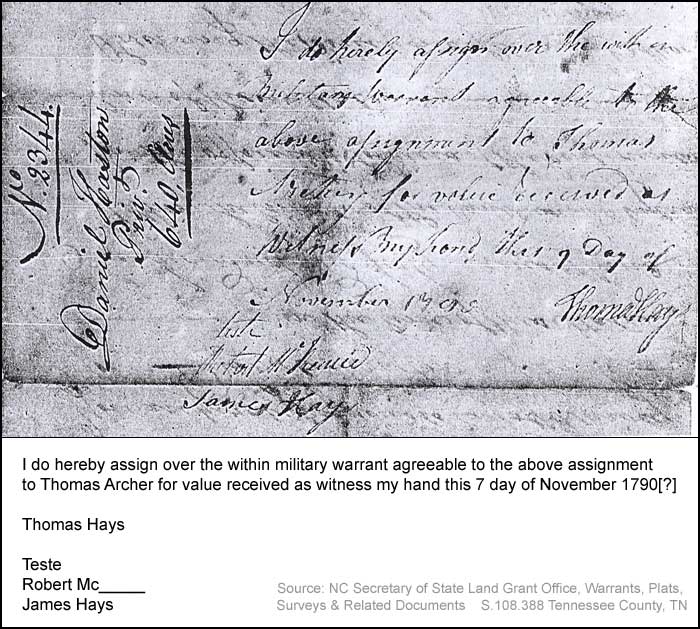 I do hereby assign over the within
Military Warrant agreeable to the
above assignment to Thomas
for value received as
Witness my hand this 7 Day of
November
Thomas Hays
teste
James Hays
No 2344
Daniel
Priv.t
640 Acres
I do hereby assign over the within military warrant agreeable to the above assignment
to Thomas Archer for value received as witness my hand this 7 day of November 1790[?]
Thomas Hays
Teste
Robert Mc_____
James Hays
Source: NC Secretary of State Land Grant Office, Warrants, Plats,
Surveys & Related Documents S.108.388 Tennessee County, TN